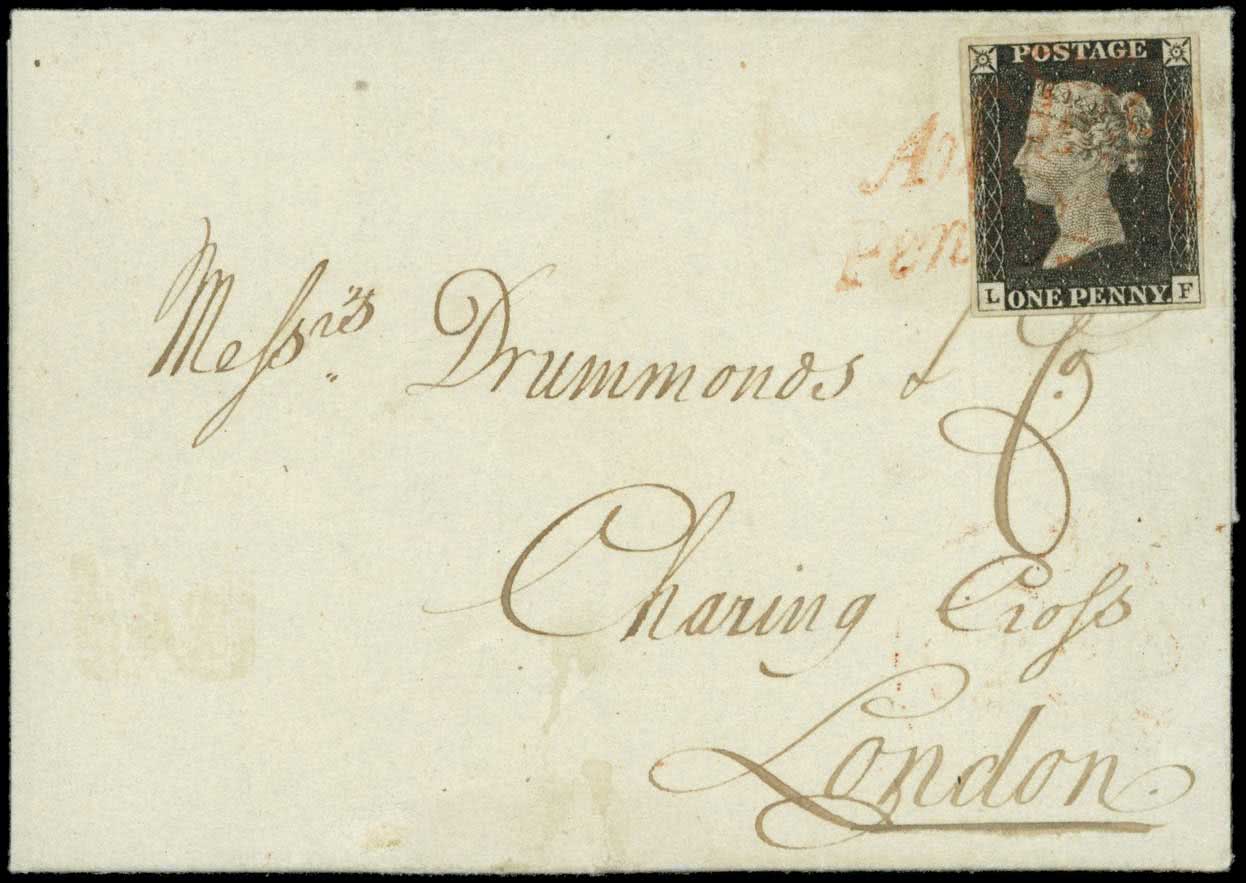 POSTAGE
L ONE PENNY. F
Messrs Drummonds & Co.
Charing Cross
London